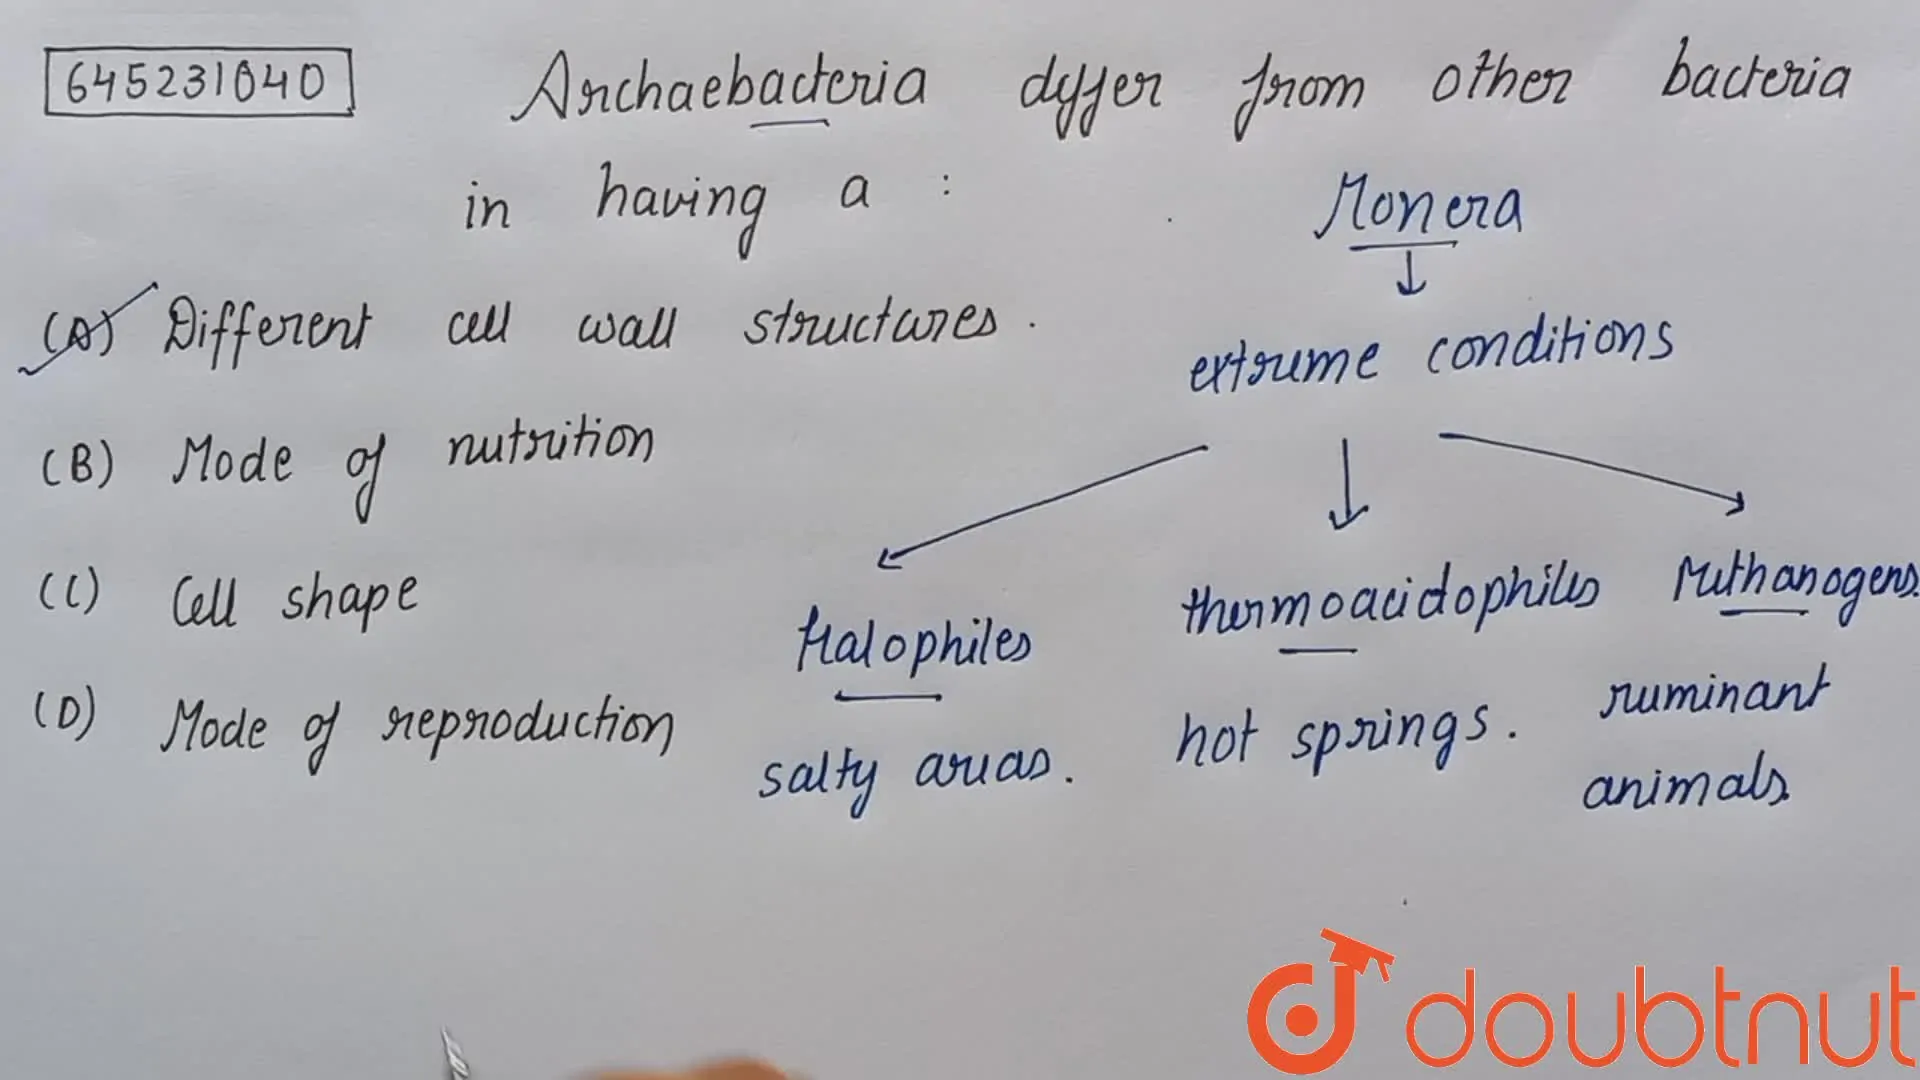 645231040
Archaebacteria differ from other bacteria
in having a :
(A) Different cell wall structures.
(B) Mode of nutrition
(C) Cell shape
(D) Mode of reproduction
Monera
extreme conditions
Halophiles
salty areas.
thermoacidophiles
hot springs.
Methanogens.
ruminant
animals.
doubtnut